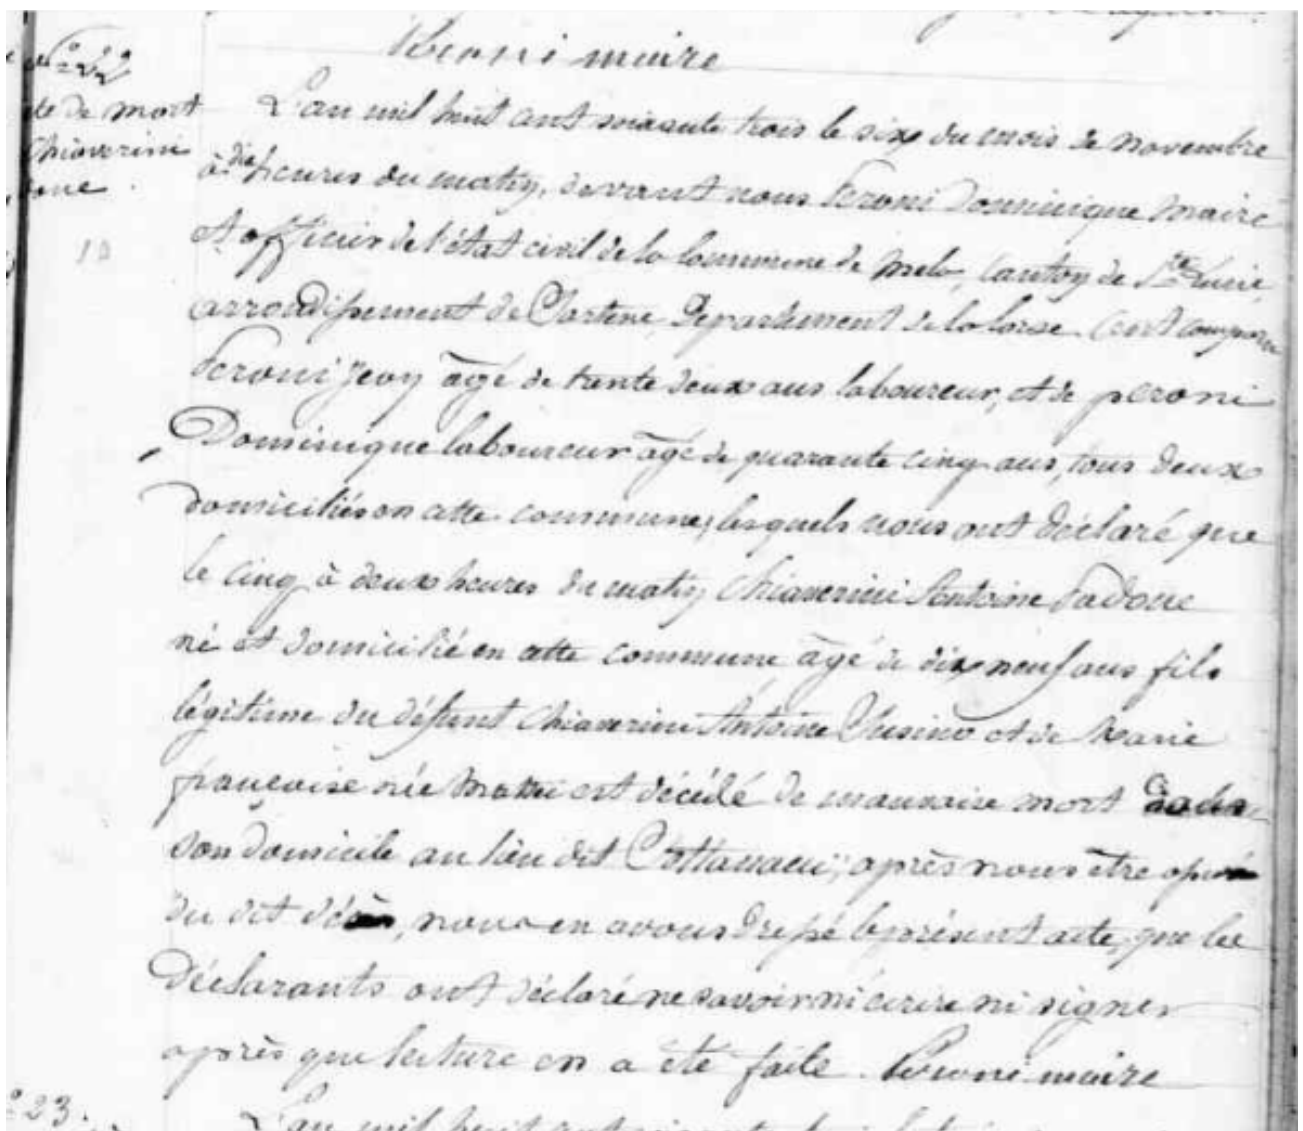 Peroni maire
N° 22
te de mort
Chiaverini
doue
10
L'an mil huit cent soixante trois le six du mois de novembre
à dix heures du matin, devant nous Peroni Dominique maire
et officier de l'état civil de la commune de Mela, canton de Ste Lucie,
arrondissement de Sartene, Département de la Corse. Sont comparu
Peroni Jean âgé de trante deux ans laboureur, et de peroni
Dominique laboureur âgé de quarante cinq ans, tous deux
domiciliés en cette commune, lesquels nous ont déclaré, que
le cinq à deux heures du matin Chiaverini Antoine Padoue
né et domicilié en cette commune, âgé de dix neuf ans fils
légitime du défunt Chiaverini Antoine et de Marie
françoise née est décédé de mauvaise mort
son domicile au lieu dit après nous être
du dit décès, nous en avons dressé le présent acte, que les
Déclarants ont déclaré ne savoir ni écrire ni signer
après que lecture en a été faite. Peroni maire
23.
L'an mil huit cent soixante trois